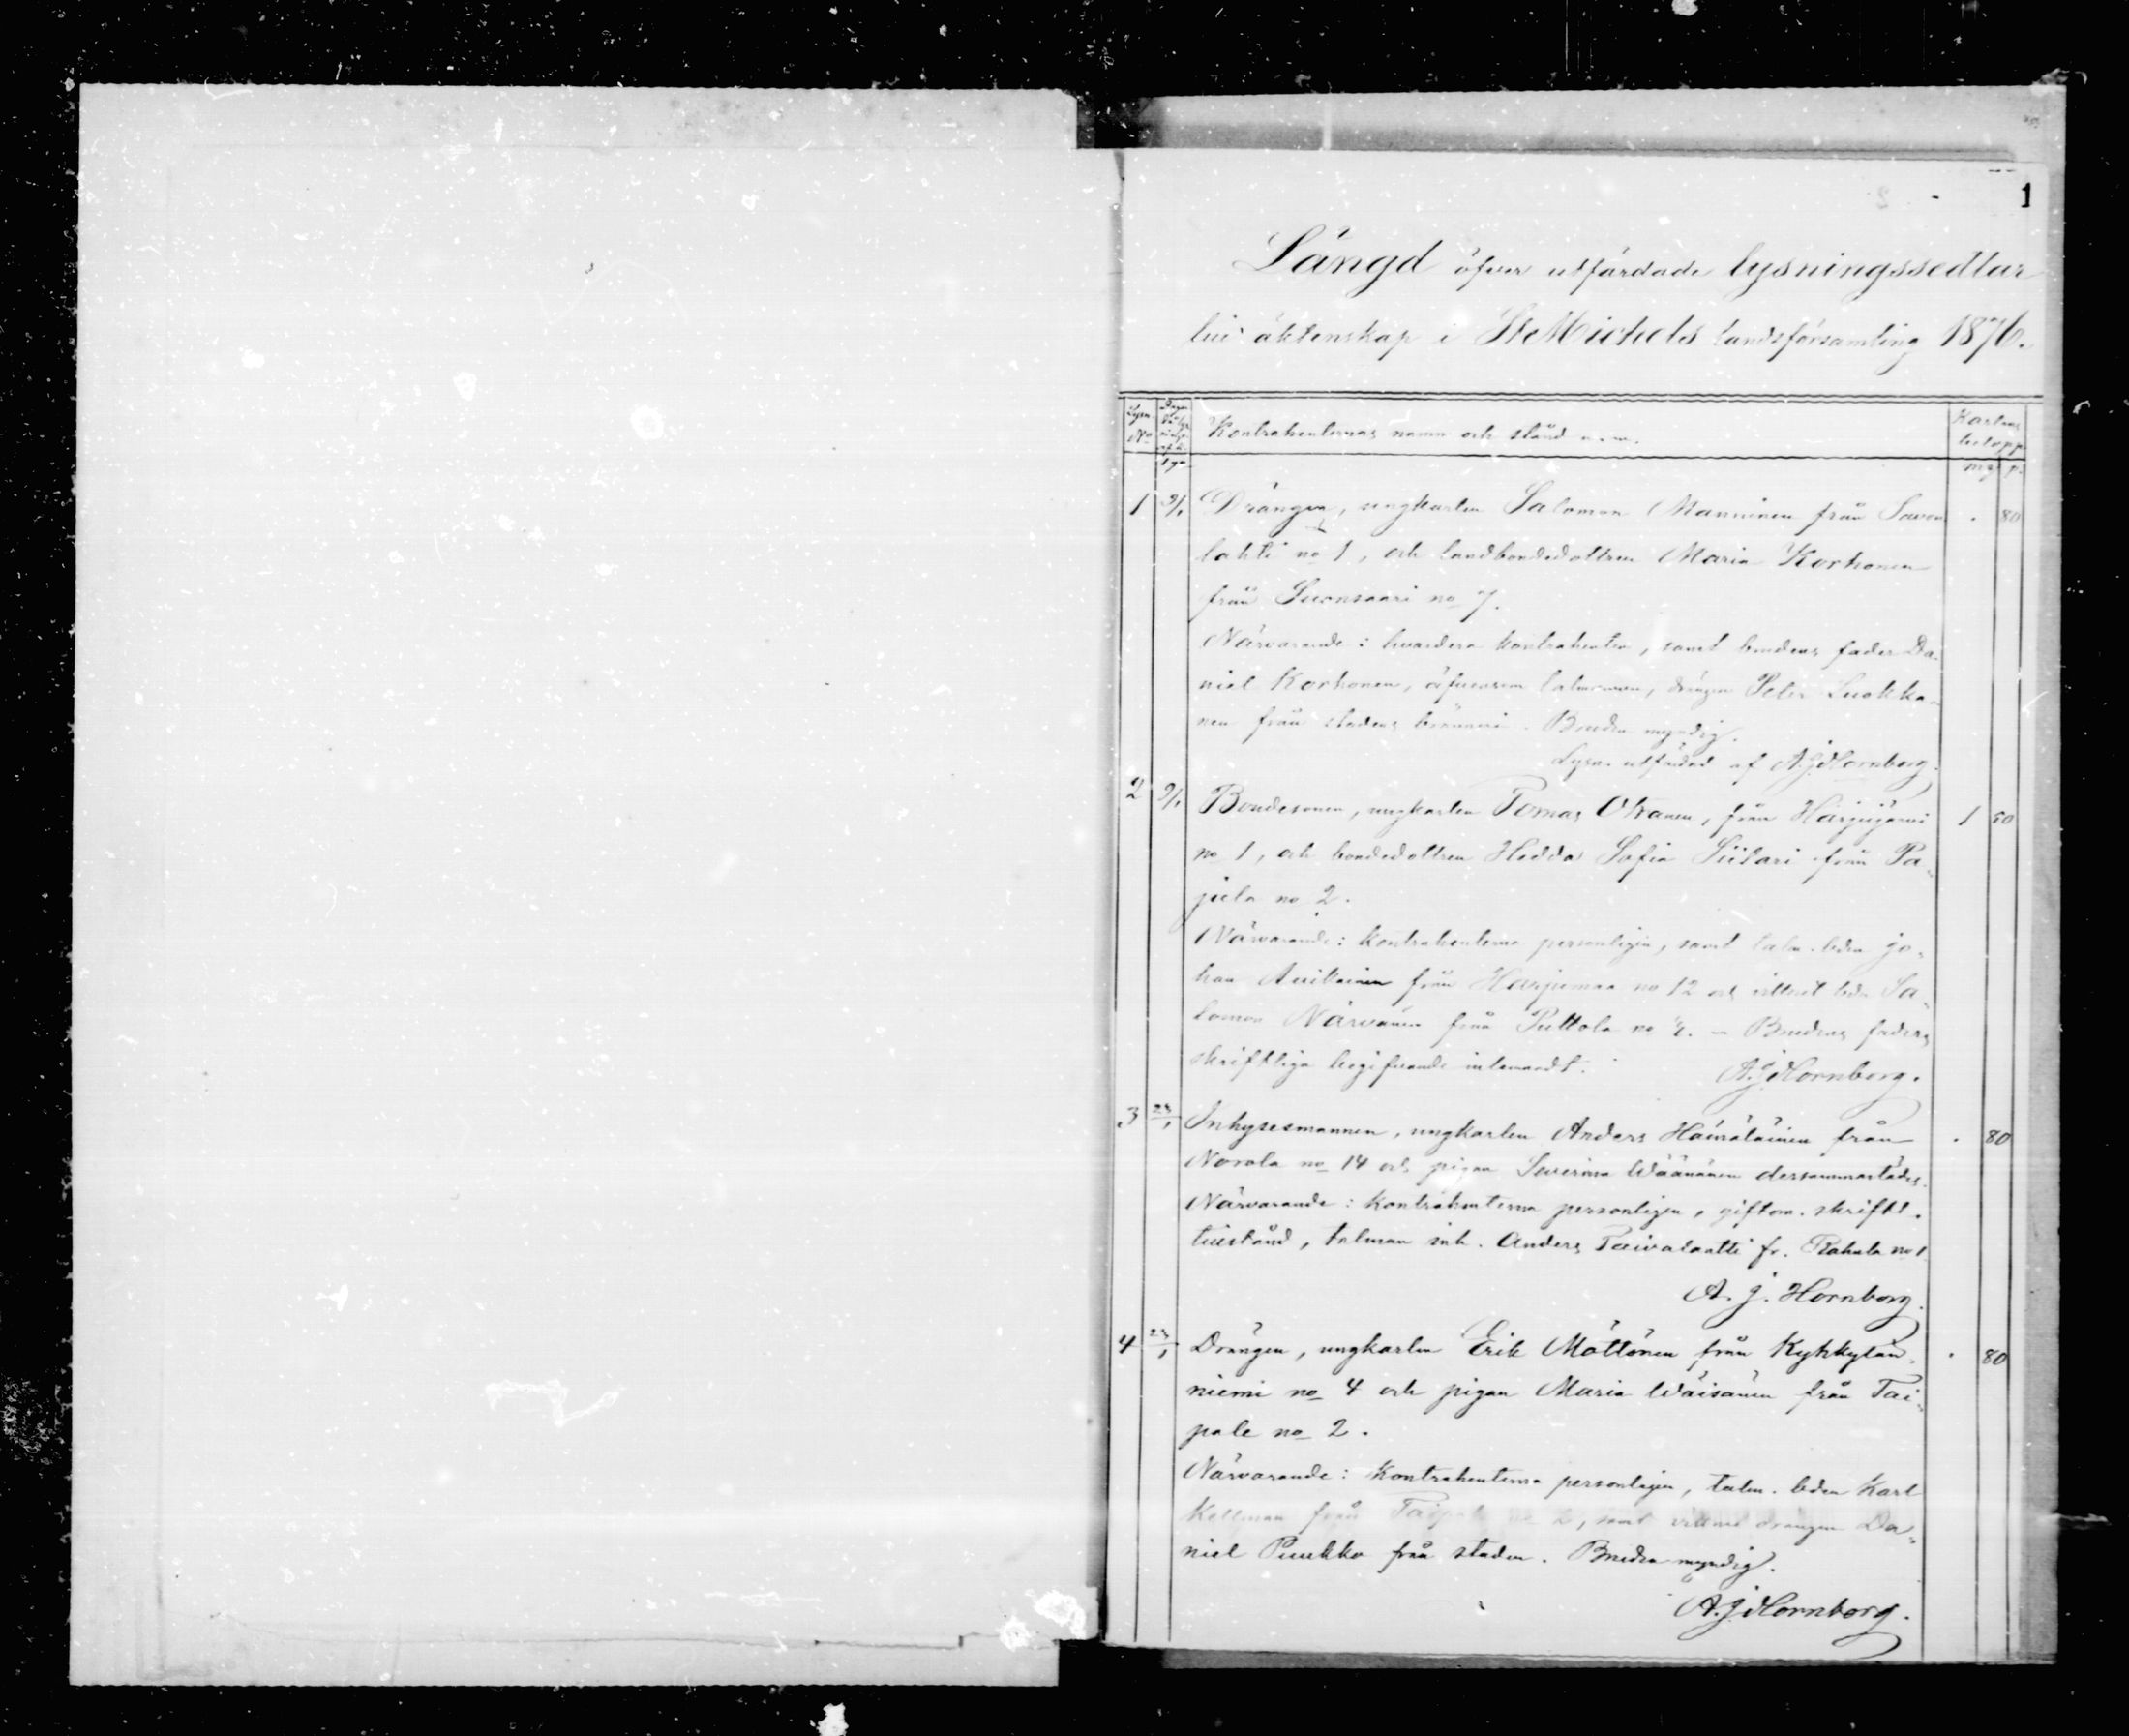 1
Längd öfver utfärdade lysningssedlar
till äktenskap i St Michels landsförsamling 1876.
Lysn. No
Kontrahenternas namn och stånd m.m.
Kartans belopp
mg p.
1 9/1 Drängen, ungkarlen Salomon Manninen från Savon . 80
lahti no 1, och landbondedottren Maria Korhonen
från Suonsaari no 7.
Närvarande: hvardera kontrahenten, samt brudens fader Da-
niel Korhonen, äfvensom talmannen, drängen Peter Luukka-
nen från stadens bränneri. Bruden myndig.
Lysn. utfärdad af A.J. Hornborg.
2 9/1 Bondesonen, ungkarlen Tomas Olkanen, från Harjujärvi 1 60
no 1, och bondedottren Hedda Sofia Siitari från Pa-
jula no 2.
Närvarande: kontrahenterna personligen, samt talm. bden Jo-
han Auvikainen från Harjumaa no 12 och vittnet bden Sa-
lomon Närvänen från Puttola no 2. – Brudens faders
skriftliga begifvande inlemnadt. A.J. Hornborg.
3 23/1 Inhysesmannen, ungkarlen Anders Hämäläinen från . 80
Norola no 14 och pigan Severina Wäänänen dersammastädes.
Närvarande: kontrahenterna personligen, giftom. skriftl.
tillstånd, talman inh. Anders Taivalantti fr. Rahula no 1
A. J. Hornborg.
4 23/1 Drängen, ungkarlen Erik Möttönen från Kyhkylän- . 80
niemi no 4 och pigan Maria Wäisänen från Tai-
pale no 2.
Närvarande: kontrahenterna personligen, talm. bden Karl
Kellman från Taipale no 2, samt vittnet drängen Da-
niel Puukko från staden. Bruden myndig.
A.J. Hornborg.